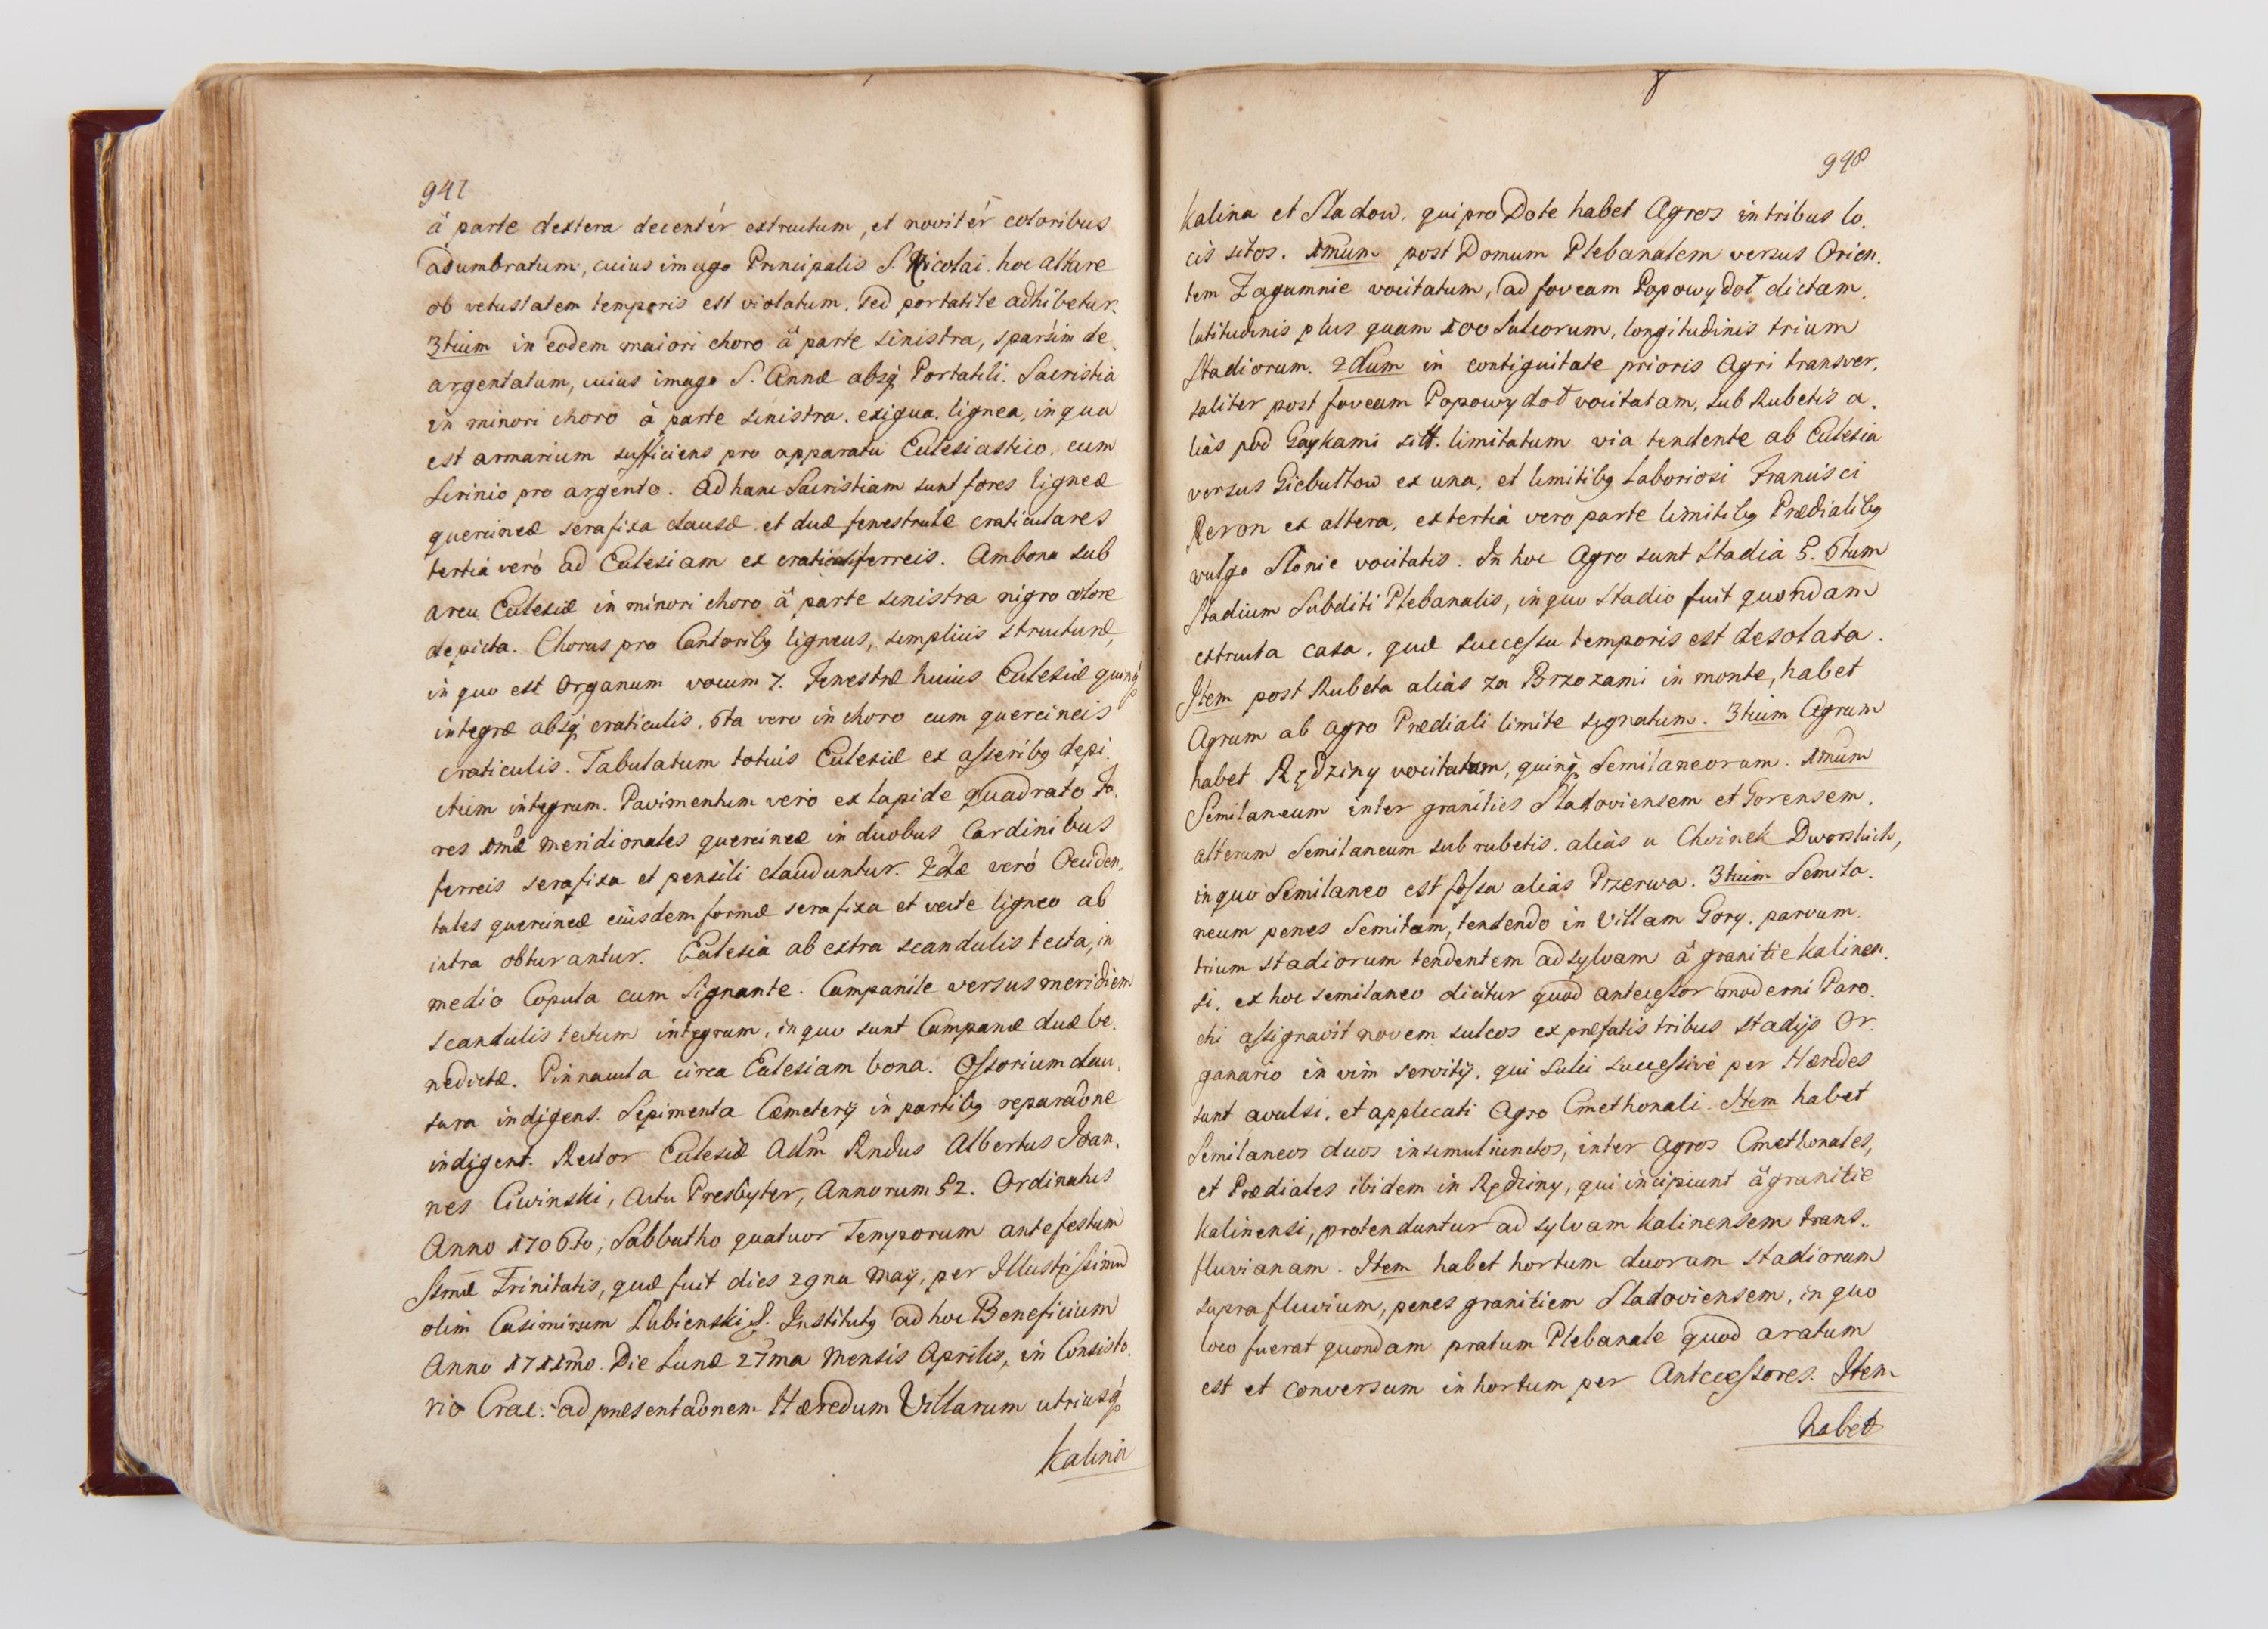 947
à parte dextera decentèr extructum, et novitèr coloribus
adumbratum, cuius imago Principalis S. Nicolai. hoc altare
ob vetustatem temporis est violatum. sed portatile adhibetur.
3tium in eodem maiori choro à parte sinistra, sparsim de.
argentatum, cuius imago S. Annæ absq3 Portatili. Sacristia
in minori choro à parte sinistra. exigua, lignea, in qua
est armarium sufficiens pro apparatu Ecclesiastico. cum
Scrinio pro argento. ad hanc Sacristiam sunt fores ligneæ
quercineæ serafixa clausæ. et duæ fenestrulæ craticulares
tertia verò ad Ecclesiam ex craticulis ferreis. Ambona sub
arcu Ecclesiæ in minori choro à parte sinistra nigro colore
depicta. Chorus pro Cantorib9 ligneus, simplicis structuræ,
in quo est Organum vocum 7. Fenestræ huius Ecclesiæ quinq3
integræ absq3 craticulis. 6ta vero in choro cum quercineis
craticulis. Tabulatum totius Ecclesiæ ex asserib9 depi.
ctum integrum. Pavimentum verò ex lapide quadrato, Fo.
res 1mæ meridionales quercineæ in duobus Cardinibus
ferreis serafixa et pensili clauduntur. 2dæ verò Occiden.
tales quercineæ eiusdem formæ serafixa et vecte ligneo ab
intra obturantur. Ecclesia ab extra scandulis tecta, in
medio Copula cum Signante. Campanile versus meridiem
scandulis tectum integrum, in quo sunt Campanæ duæ be.
nedictæ. Pinnacula circa Ecclesiam bona. Ossorium clau.
sura indigens. Sepimenta Cæmeterij in partib9 reparaõne
indigent. Rector Ecclesiæ Adm̃ Rndus Albertus Ioan.
nes Ciwinski, Actu Presbyter, Annorum 52. Ordinatus
Anno 1706to, Sabbatho quatuor Temporum ante festum
Ssmæ Trinitatis, quæ fuit dies 29na Maij, per Illustrissimũ
olim Casimirum Łubienski S. Institut9 ad hoc Beneficium
Anno 1711mo. Die Lunæ 27ma Mensis Aprilis, in Consisto.
rio Crac: ad præsentaõnem Hæredum Villarum utriusq3
Kalina
948
Kalina et Sladow. qui pro Dote habet Agros in tribus lo.
cis sitos. 1mum post Domum Plebanalem versus Orien.
tem Zagumnie vocitatum, ad foveam Popowy doł dictam.
latitudinis plus quam 100 Sulcorum, longitudinis trium
Stadiorum. 2dum in contiguitate prioris Agri transver.
saliter post foveam Popowy doł vocitatam, sub Rubetis a.
liàs pod Gaykami sitt. limitatum via tendente ab Ecclesia
versus Giebułtow ex una, et limitib9 Laboriosi Francisci
Reron ex altera, ex tertià vero parte limitib9 Prædialib9
vulgo Słonie vocitatis. In hoc Agro sunt Stadia 5. 6tum
Stadium Subditi Plebanalis, in quo Stadio fuit quondam
extructa casa, quæ successu temporis est desolata.
Item post Rubeta aliàs za Brzozami in monte, habet
Agrum ab agro Prædiali limite signatum. 3tium Agrum
habet Rędziny vocitatum, quinq3 Semilaneorum. 1mum
Semilaneum inter granities Sladoviensem et Gorensem.
alterum Semilaneum sub rubetis. aliàs u Choinek Dworskich,
in quo Semilaneo est fossa aliàs Przerwa. 3tium Semila.
neum penes Semitam, tendendo in Villam Gory. parvum.
trium stadiorum tendentem ad sylvam à granitie Kalinen.
si, ex hoc semilaneo dicitur quod antecessor moderni Paro.
chi assignavit novem sulcos ex præfatis tribus stadijs Or.
ganario in vim servitij. qui Sulci successivè per Hæredes
sunt avulsi, et applicati Agro Cmethonali. Item habet
Semilaneos duos insimul iunctos, inter Agros Cmethonales,
et Prædiales ibidem in Rędziny, qui incipiunt à granitie
Kalinensi, protenduntur ad sylvam Kalinensem trans..
fluvianam. Item habet hortum duorum stadiorum
supra fluvium, penes granitiem Sladoviensem, in quo
loco fuerat quondam pratum Plebanale quod aratum
est et conversum in hortum per Antecessores. Item
habet